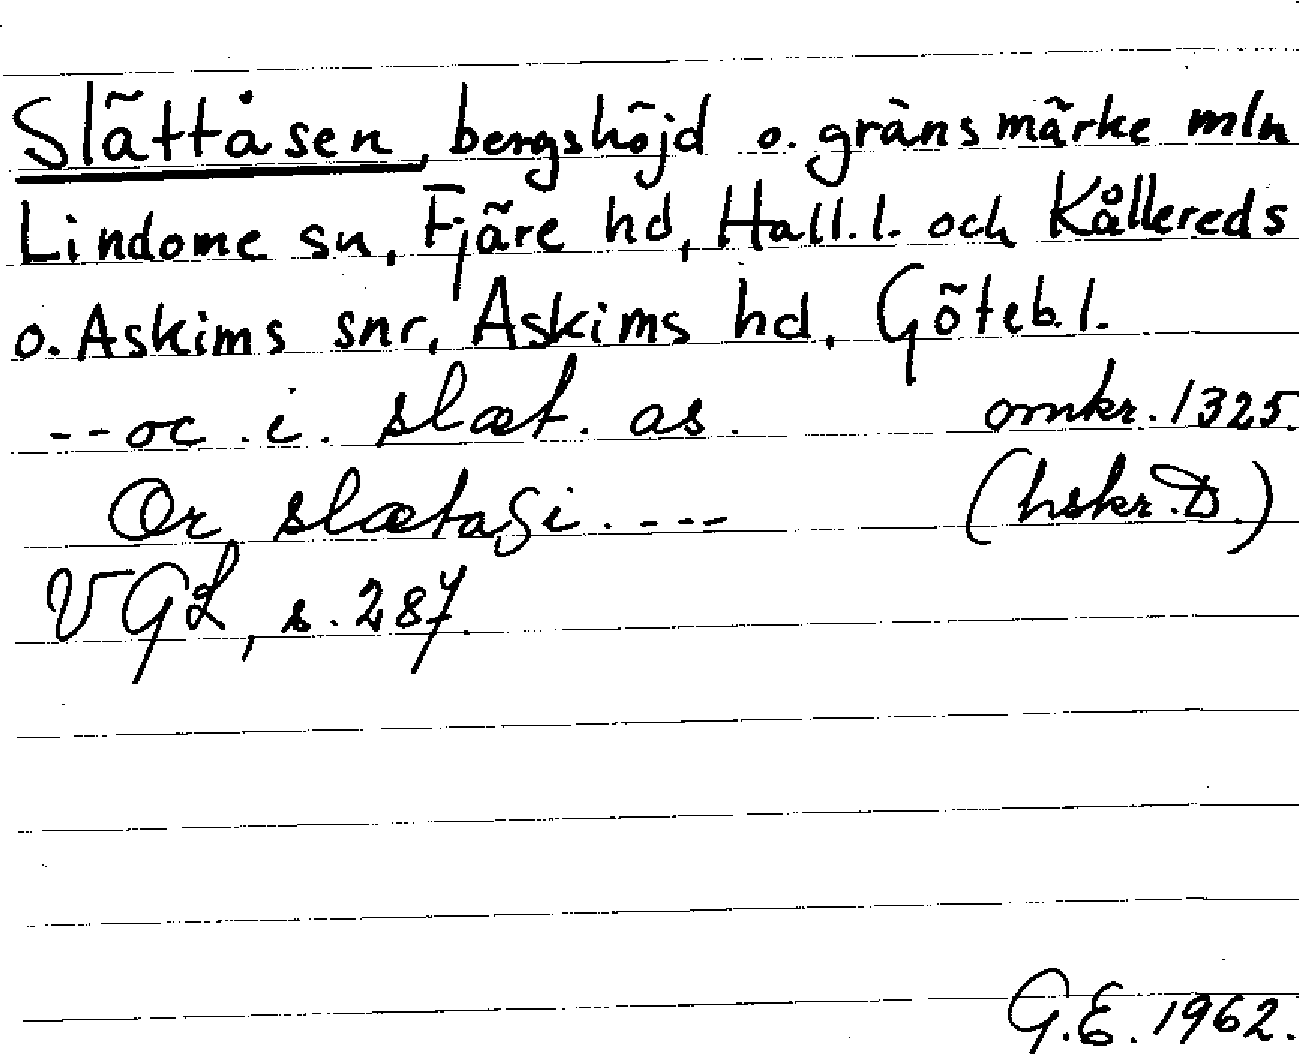 Slättåsen, bergshöjd o. gränsmärke mln
Lindome sn, Fjäre hd, Hall.l. och Kållereds
o. Askims snr, Askims hd, Göteb.l.
--oc . i . slæt . as . omkr. 1325.
Or slætaSi.---- (hskr. D.)
VGL, s. 287.
G.E. 1962.